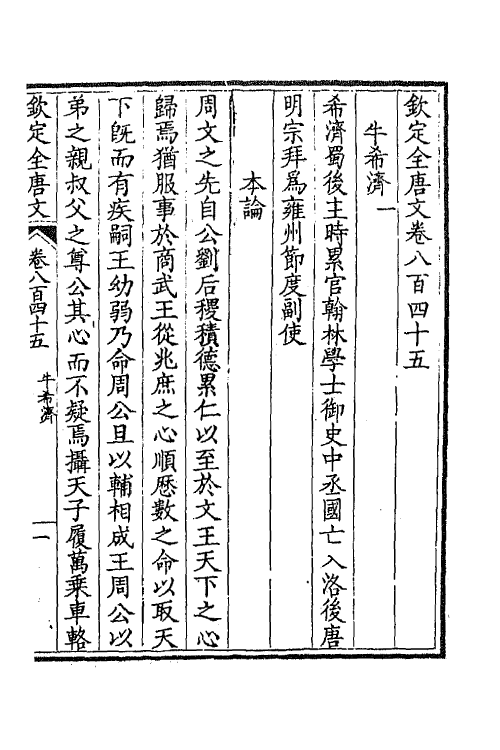 欽定全唐文卷八百四十五
牛希濟一
希濟蜀後主時累官翰林學士御史中丞國亡入洛後唐
明宗拜爲雍州節度副使
本論
周文之先自公劉后稷積德累仁以至於文王天下之心
歸焉猶服事於商武王從兆庶之心順歷數之命以取天
下旣而有疾嗣王幼弱乃命周公旦以輔相成王周公以
弟之親叔父之尊公其心而不疑焉攝天子履萬乘車輅
欽定全唐文
卷八百四十五
牛希濟
一